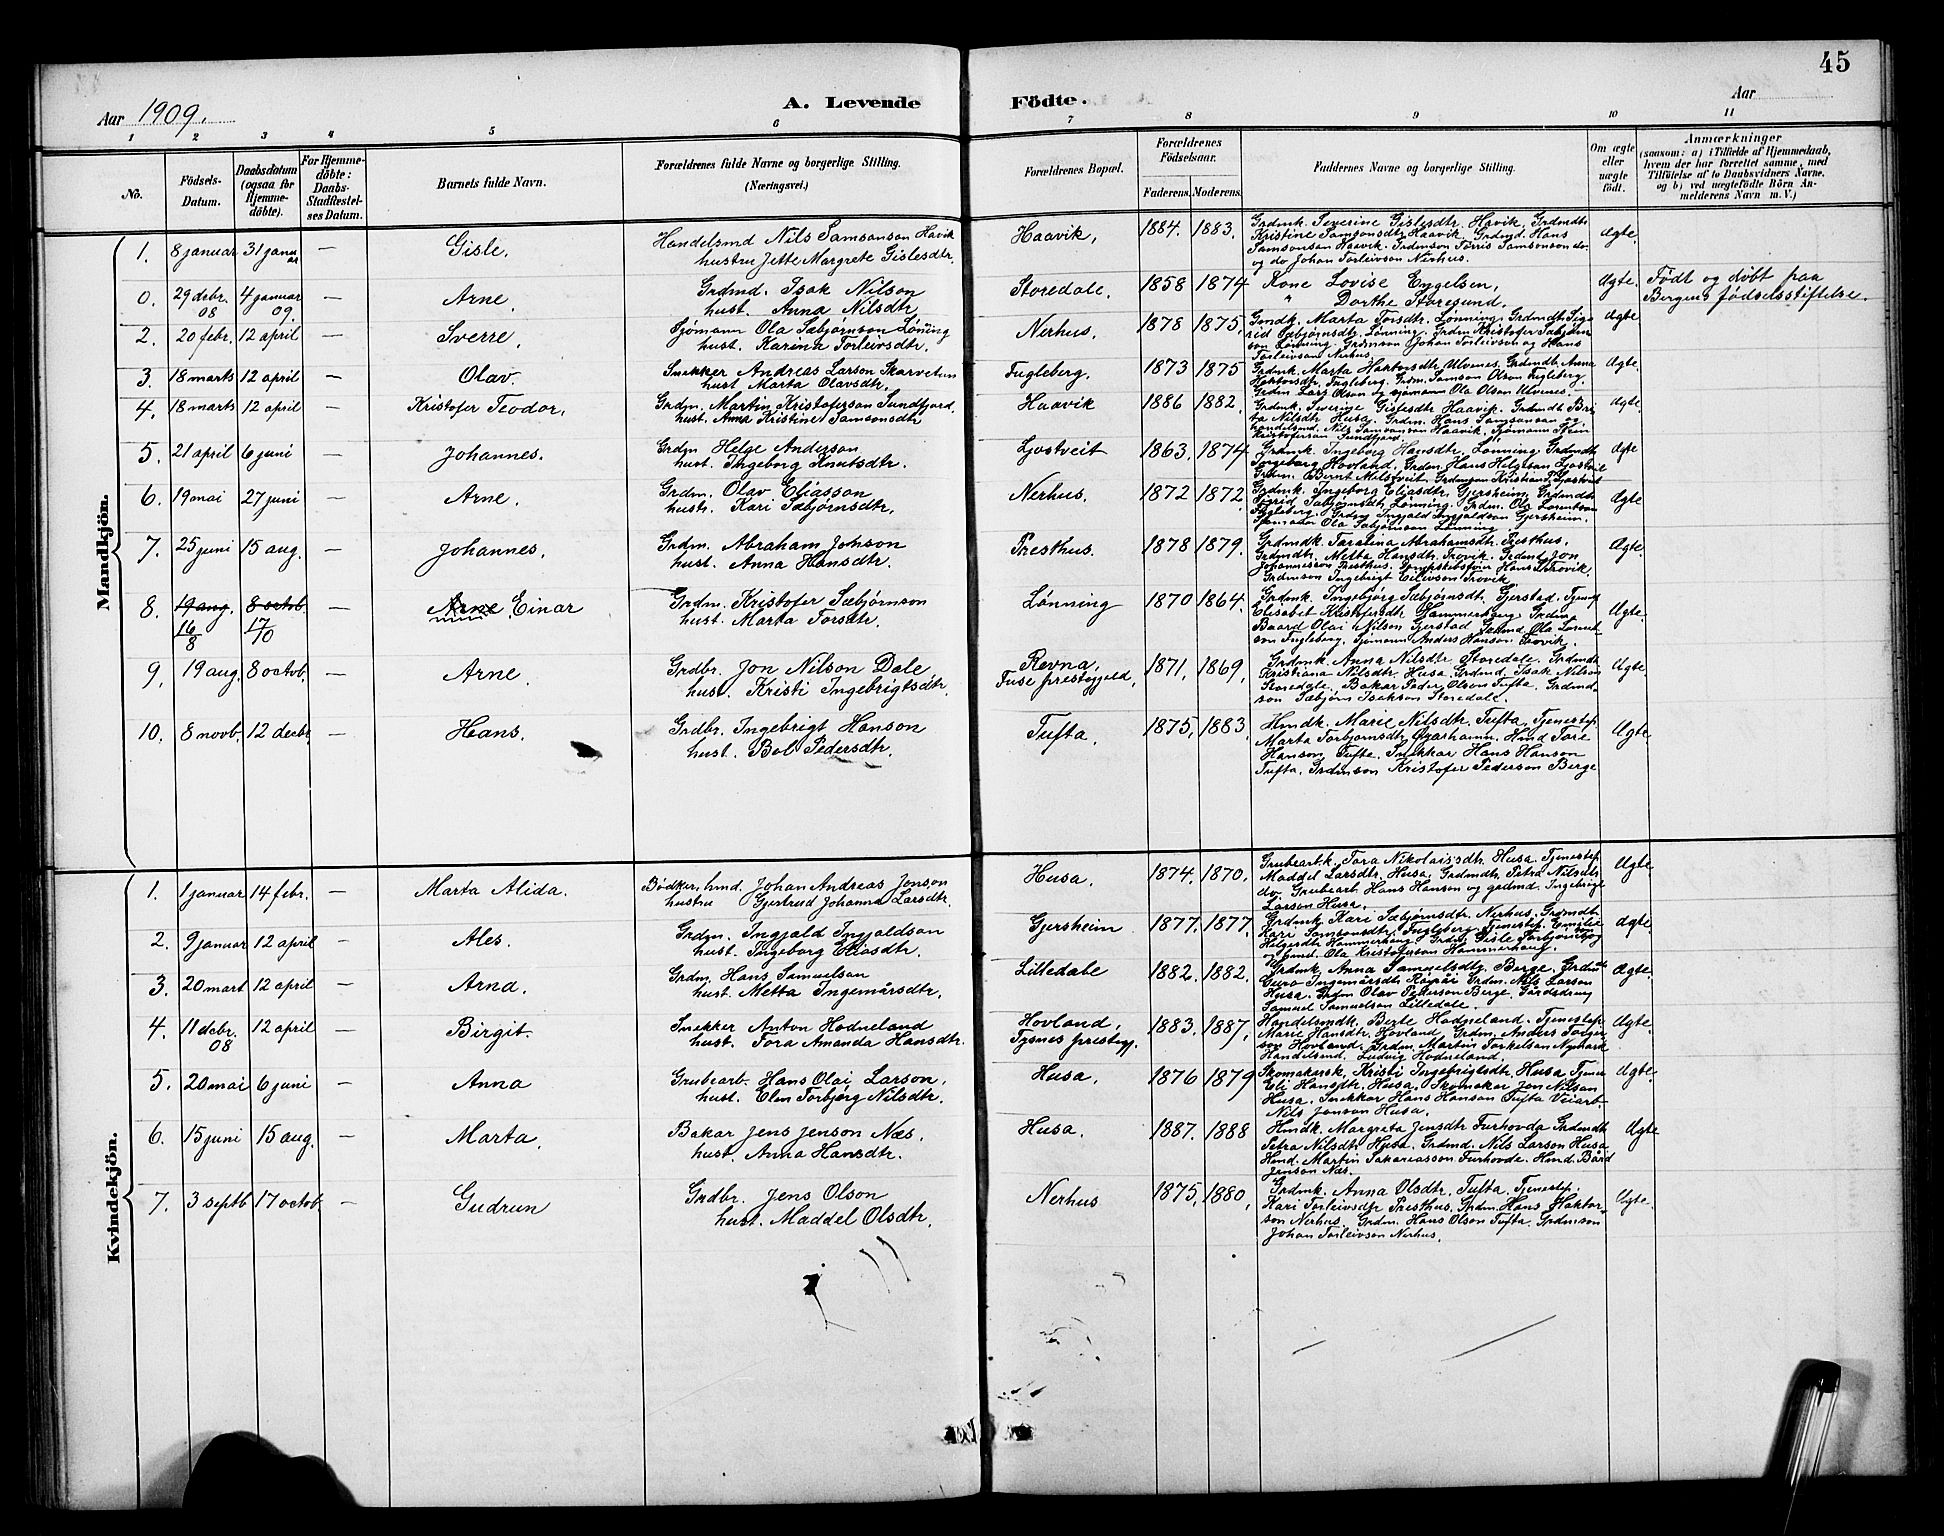 45
Aar 1909.
A. Levende Födte.
Aar
1 2 3 4 5 6 7 8 9 10 11
No.
Födsels-Datum.
Daabsdatum (ogsaa for Hjemme-döbte).
For Hjemme-döbte: Daabs-Stadfæstel-ses Datum.
Barnets fulde Navn.
Forældrenes fulde Navne og borgerlige Stilling. (Næringsvei.)
Forældrenes Bopæl.
Forældrenes Födselsaar.
Faderens. Moderens.
Faddernes Navne og borgerlige Stilling.
Om ægte eller uægte födt.
Anmærkninger
(saasom: a) i Tilfælde af Hjemmedaab,
hvem der har forrettet samme, med
Tilföielse af to Daabsvidners Navne,
og b) ved uægtefödte Börn An-
melderens Navn m. V.)
Mandkjön.
1. 8 januar 31 januar — Gisle. Handelsmd Nils Samsonson Havik
hustru Jette Margrete Gislesdtr.
Haavik, 1884. 1883. Grdmk. Severine Gislesdtr. Haavik, Grdmdtr
Kristine Samsonsdtr Haavik. Grdmd. Hans
Samsonson Haavik. Grdmson Torris Samsonson do.
og do Johan Torleivson Nerhus.
Ægte.
0. 29 debr. 08 4 januar 09. — Arne. Grdmd. Isak Nilson
hust. Anna Nilsdtr
Storedale. 1858 1874 Kone Lovise Engelsen,
" Dorthe Storesund.
Ægte. Født og døbt paa
Bergens fødselsstiftelse.
2. 20 febr. 12 april — Sverre. Sjømann Ola Sæbjørnson Lønning
hust. Karina Torleivsdtr.
Nerhus. 1878 1875. Gmdk. Marta Torsdtr. Lønning. Grdmdt. Sig-
rid Sæbjørnsdtr. Lønning. Grdm Kristofer Sæbjørn
son Lønning. Grdmson Johan Torleivson og Hans
Torleivson Nerhus.
Ægte
3. 18 marts 12 april — Olav. Snekker Andreas Larson Skarveten
hust Marta Olavsdtr.
Fugleberg. 1873 1875 Grdmk. Marta Haktorsdtr Ulvenes. Grdmdtr Anna
Haktorsdtr. Fugleberg. Grdm. Samson Olson Fugleberg.
Grdm Lars Olson og sjømann Ola Olson Ulvenes.
Ægte.
4. 18 marts 12 april — Kristofer Teodor. Grdm. Martin Kristoferson Sundfjord.
hust. Anna Kristine Samsonsdtr
Haavik 1886 1882. Grdmk. Severine Gislesdtr Haavik. Grdmdt. Bri
ta Nilsdtr Husa. Grdm. Hans Samsonson og
handelsmd. Nils Samsonson Haavik, Sjømann Stein
Kristoferson Sundfjord.
Ægte.
5. 21 april 6 juni — Johannes. Grdm Helge Anderson
hust. Ingeborg Knutsdtr.
Ljostveit 1863. 1874 Grdmk. Ingeborg Hansdtr. Lønning Grdmdt
Ingeborg Hovland. Grdm. Hans Helgeson Ljostveit
Grdm. Bernt Milstveit. Grdmson Kristian Ljostveit
Ægte
6. 19 mai 27 juni — Arne. Grdm. Olav Eliasson
hustr. Kari Sæbjørnsdtr.
Nerhus. 1872 1872 Grdmk. Ingeborg Eliasdtr. Gjersheim. Grdmdt
Sigrid Sæbjørnsdtr. Lønning. Grdm. Ola Larentson
Fugleberg. Grdm Ingjald Ingjaldson Gjersheim.
Sjømann Ola Sæbjørnson Lønning
Ægte.
7. 25 juni 15 aug. — Johannes. Grdm. Abraham Johson
hust. Anna Hansdtr.
Presthus. 1878 1879. Grdmdk. Taralina Abrahamsdtr. Presthus.
Grdmdt. Metta Hansdtr. Trovik. Grdmd. Jon
Johannesson Presthus. Hans Trovik.
Grdmson Ingebrigt Eilivson Trovik
Ægte.
8. 19 aug. 16/8 8 octob. 17/10 — Arne Einar Grdm. Kristofer Sæbjørnson
hust. Marta Torsdtr.
Lønning 1870 1864. Grdmk. Ingebjørg Sæbjørnsdtr. Gjerstad. Tjenepi
Elisabet Kristofersdtr Hammerhaug. Grdm
Baard Olai Nilson Gjerstad Grdmd Ola Larent
son Fugleberg. Sjømann Anders Hanson Trovik.
Ægte.
9. 19 aug. 8 octob. — Arne. Grdbr. Jon Nilson Dale
hust. Kristi Ingebrigtsdtr.
Revna, Fuse prestegjeld, 1871. 1869. Grdmk. Anna Nilsdtr Storedale. Grdmdt
Kristiana Nilsdtr. Husa. Grdmd. Isak Nilson
Storedale. Bakar Peder Olson Tufta. Grdmd.
son Sæbjørn Isakson Storedale.
Ægte.
10. 8 novb. 12 decbr — Hans. Grdbr. Ingebrigt Hanson
hust. Bol Pedersdtr.
Tufta. 1875. 1883. Hmdk. Marie Nilsdtr. Tufta. Tjenestepi
Marta Torbjørnsdtr. Hmd Tore
Hanson Tufte. Snekkar Hans Hanson
Tufta. Grdmson Kristofer Pederson Berge
Ægte.
Kvindekjön.
1. 1 januar 14 febr. — Marta Alida. Bødker, hmd. Johan Andreas Jonson
hustru Gjertrud Johanna Larsdtr.
Husa. 1874. 1870. Grubearb.k. Tora Nikolaisdtr. Husa. Tjenestepi.
Maddel Larsdtr. Husa. Grdmdtr Petra Nilsdtr
do. Grubearb. Hans Hanson og grdmd. Ingebrigt
Larson Husa.
Ægte
2. 9 januar 12 april — Ales. Grdm. Ingjald Ingjaldson
hust. Ingeborg Eliasdtr.
Gjersheim 1877. 1877. Grdmk. Kari Sæbjørnsdtr. Nerhus. Grdmdt.
Kari Samsonsdtr. Fugleberg. Tjenestepi. Emilie
Helgesdtr Hammerhaug. Grdm Gisle Torbjørnson
og hmd. Ola Kristoferson Hammerhaug.
Ægte.
3. 20 mart 12 april — Arna. Grdm. Hans Samuelson
hust. Metta Ingemårsdtr.
Lilledale 1882. 1882. Grdmk. Anna Samuelsdtr. Berge. Grdmdt
Guro Ingemårsdtr. Grdm. Nils Larson
Husa. Grdm Olav Pederson Berge. Gårdsdreng
Samuel Samuelson Lilledale.
Ægte.
4. 11 debr. 08 12 april — Birgit. Snekker Anton Hodneland
hust. Tora Amanda Hansdtr.
Hovland, Tysnes prestegj. 1883. 1887. Handelsmdk. Berte Hodneland. Tjenestepi
Marie Hansdtr. Hovland. Grdm. Anders Torger
son Hovland. Grdm. Martin Torkelson Nymark
Handelsmd. Ludvig Hodneland.
Ægte.
5. 20 mai 6 juni — Anna Grubearb. Hans Olai Larson.
hust. Elen Torbjørg Nilsdtr.
Husa. 1876 1879 Skomakersk. Kristi Ingebrigtsdtr. Husa Tjener
Eli Hansdtr. Husa. Skomaker Jon Nilson
Husa. Snekkar Hans Hanson Tufta Veiarb.
Nils Jonson Husa.
Ægte.
6. 15 juni 15 aug. — Marta. Bakar Jens Jenson Næs.
hust. Anna Hansdtr.
Husa. 1887. 1888 Hmdk. Margreta Jensdtr Furhovda Grdmdt
Petra Nilsdtr Husa. Grdmd. Nils Larson Husa
Hmd. Martin Sakariasson Furhovde. Hmd. Bård
Jenson Næs.
Ægte
7. 3 septb 17 octob. — Gudrun Grdbr. Jens Olson
hust. Maddel Olsdtr.
Nerhus 1875. 1880. Grdmk. Anna Olsdtr. Tufta. Tjenestepi.
Kari Torleivsdtr Presthus. Grdm. Hans Haktor-
son Nerhus. Grdm. Hans Olson Tufta. Grdmson
Johan Torleivson Nerhus.
Ægte.